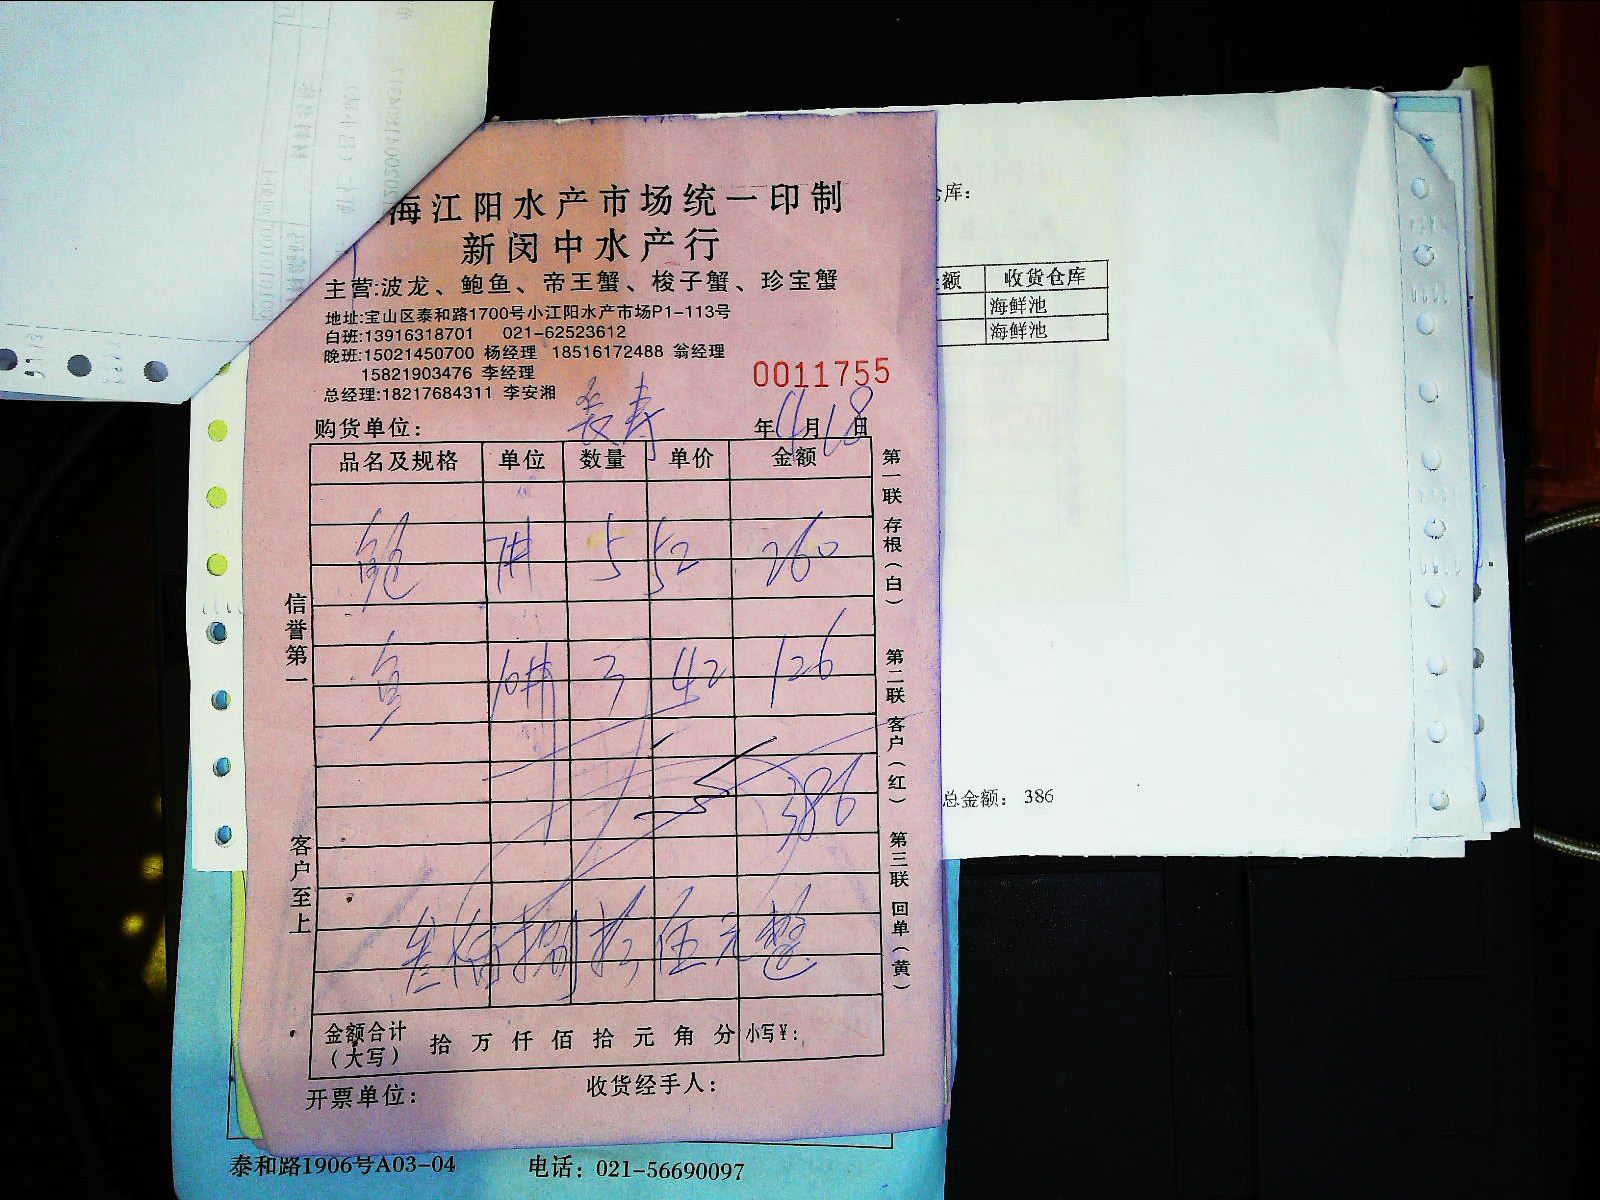 海江阳水产市场统一印制
新闵中水产行
主营:波龙、鲍鱼、帝王蟹、梭子蟹、珍宝蟹
地址:宝山区泰和路1700号小江阳水产市场P1-113号
白班:13916318701 021-62523612
晚班:15021450700 杨经理 18516172488 翁经理
15821903476 李经理
总经理:18217684311 李安湘
0011755
购货单位: 长寿 年11月18日
品名及规格 单位 数量 单价 金额
鲍 5 52 260
3 42 126
386
叁佰捌拾伍元整
金额合计(大写) 拾 万 仟 佰 拾 元 角 分 小写¥:
开票单位: 收货经手人:
信誉第一
客户至上
第一联 存根(白)
第二联 客户(红)
第三联 回单(黄)
库:
额 收货仓库
海鲜池
海鲜池
总金额: 386
泰和路1906号A03-04 电话: 021-56690097